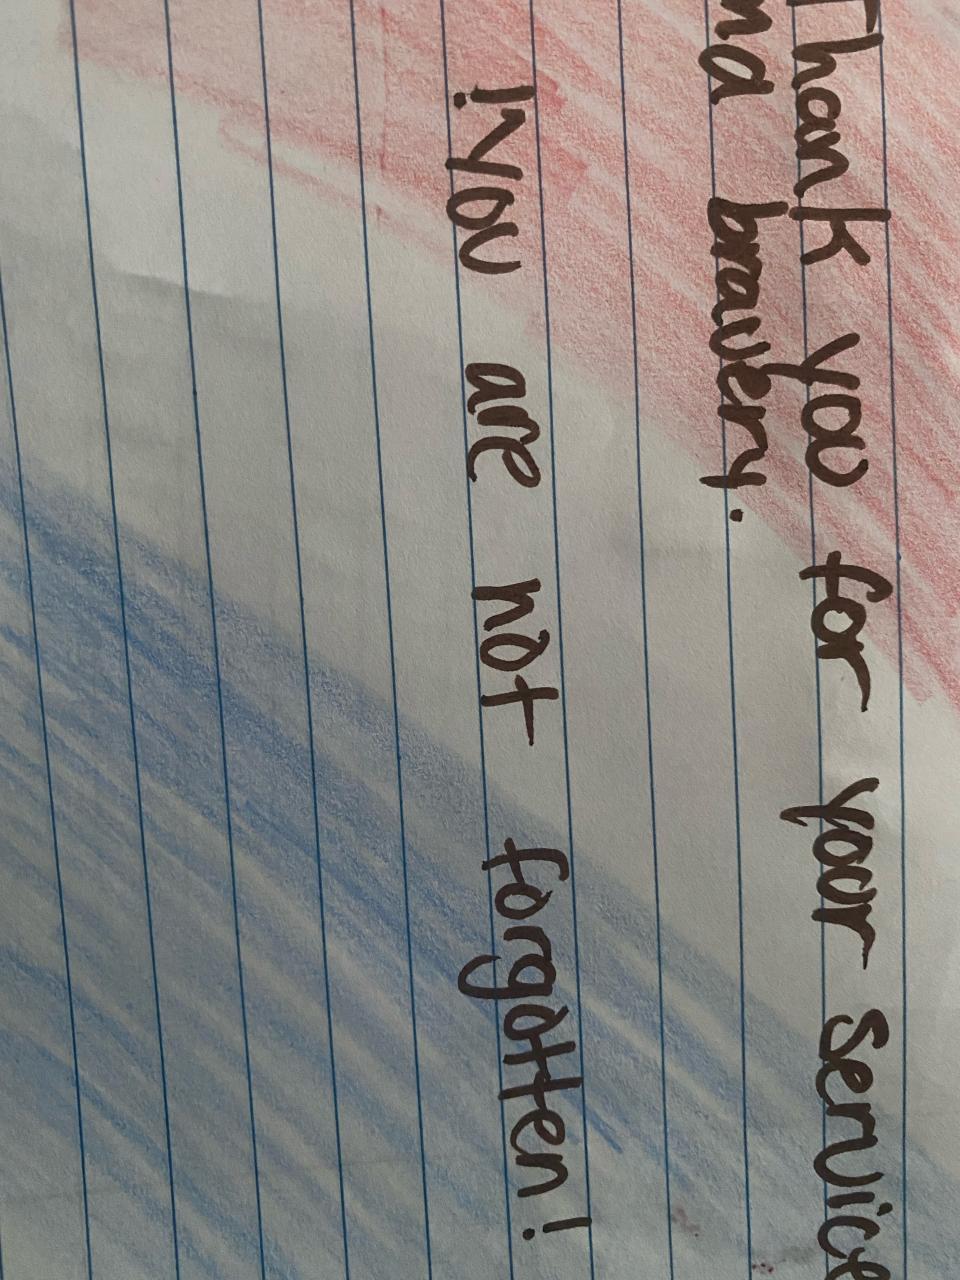 Thank you for your service
and bravery.
!You are not forgotten!